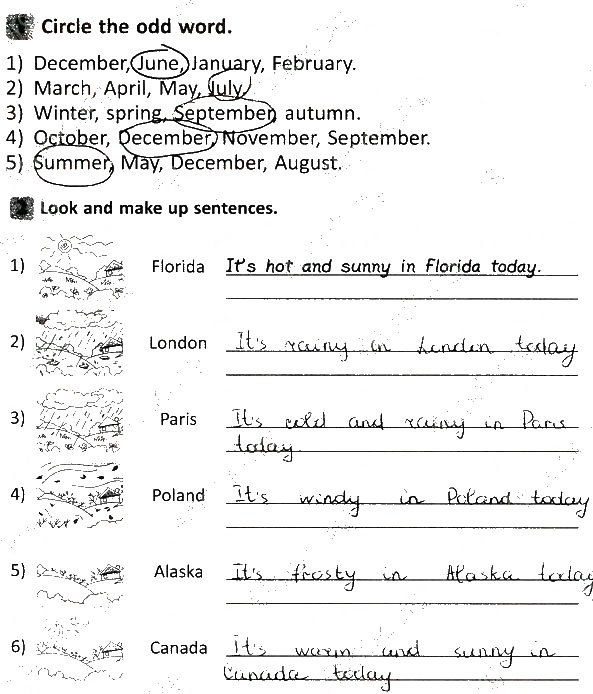 Circle the odd word.
1) December, June, January, February.
2) March, April, May, July.
3) Winter, spring, September, autumn.
4) October, December, November, September.
5) Summer, May, December, August.
Look and make up sentences.
1) Florida It's hot and sunny in Florida today.
2) London It's rainy in London today
3) Paris It's cold and rainy in Paris
today.
4) Poland It's windy in Poland today
5) Alaska It's frosty in Alaska today
6) Canada It's warm and sunny in
Canada today